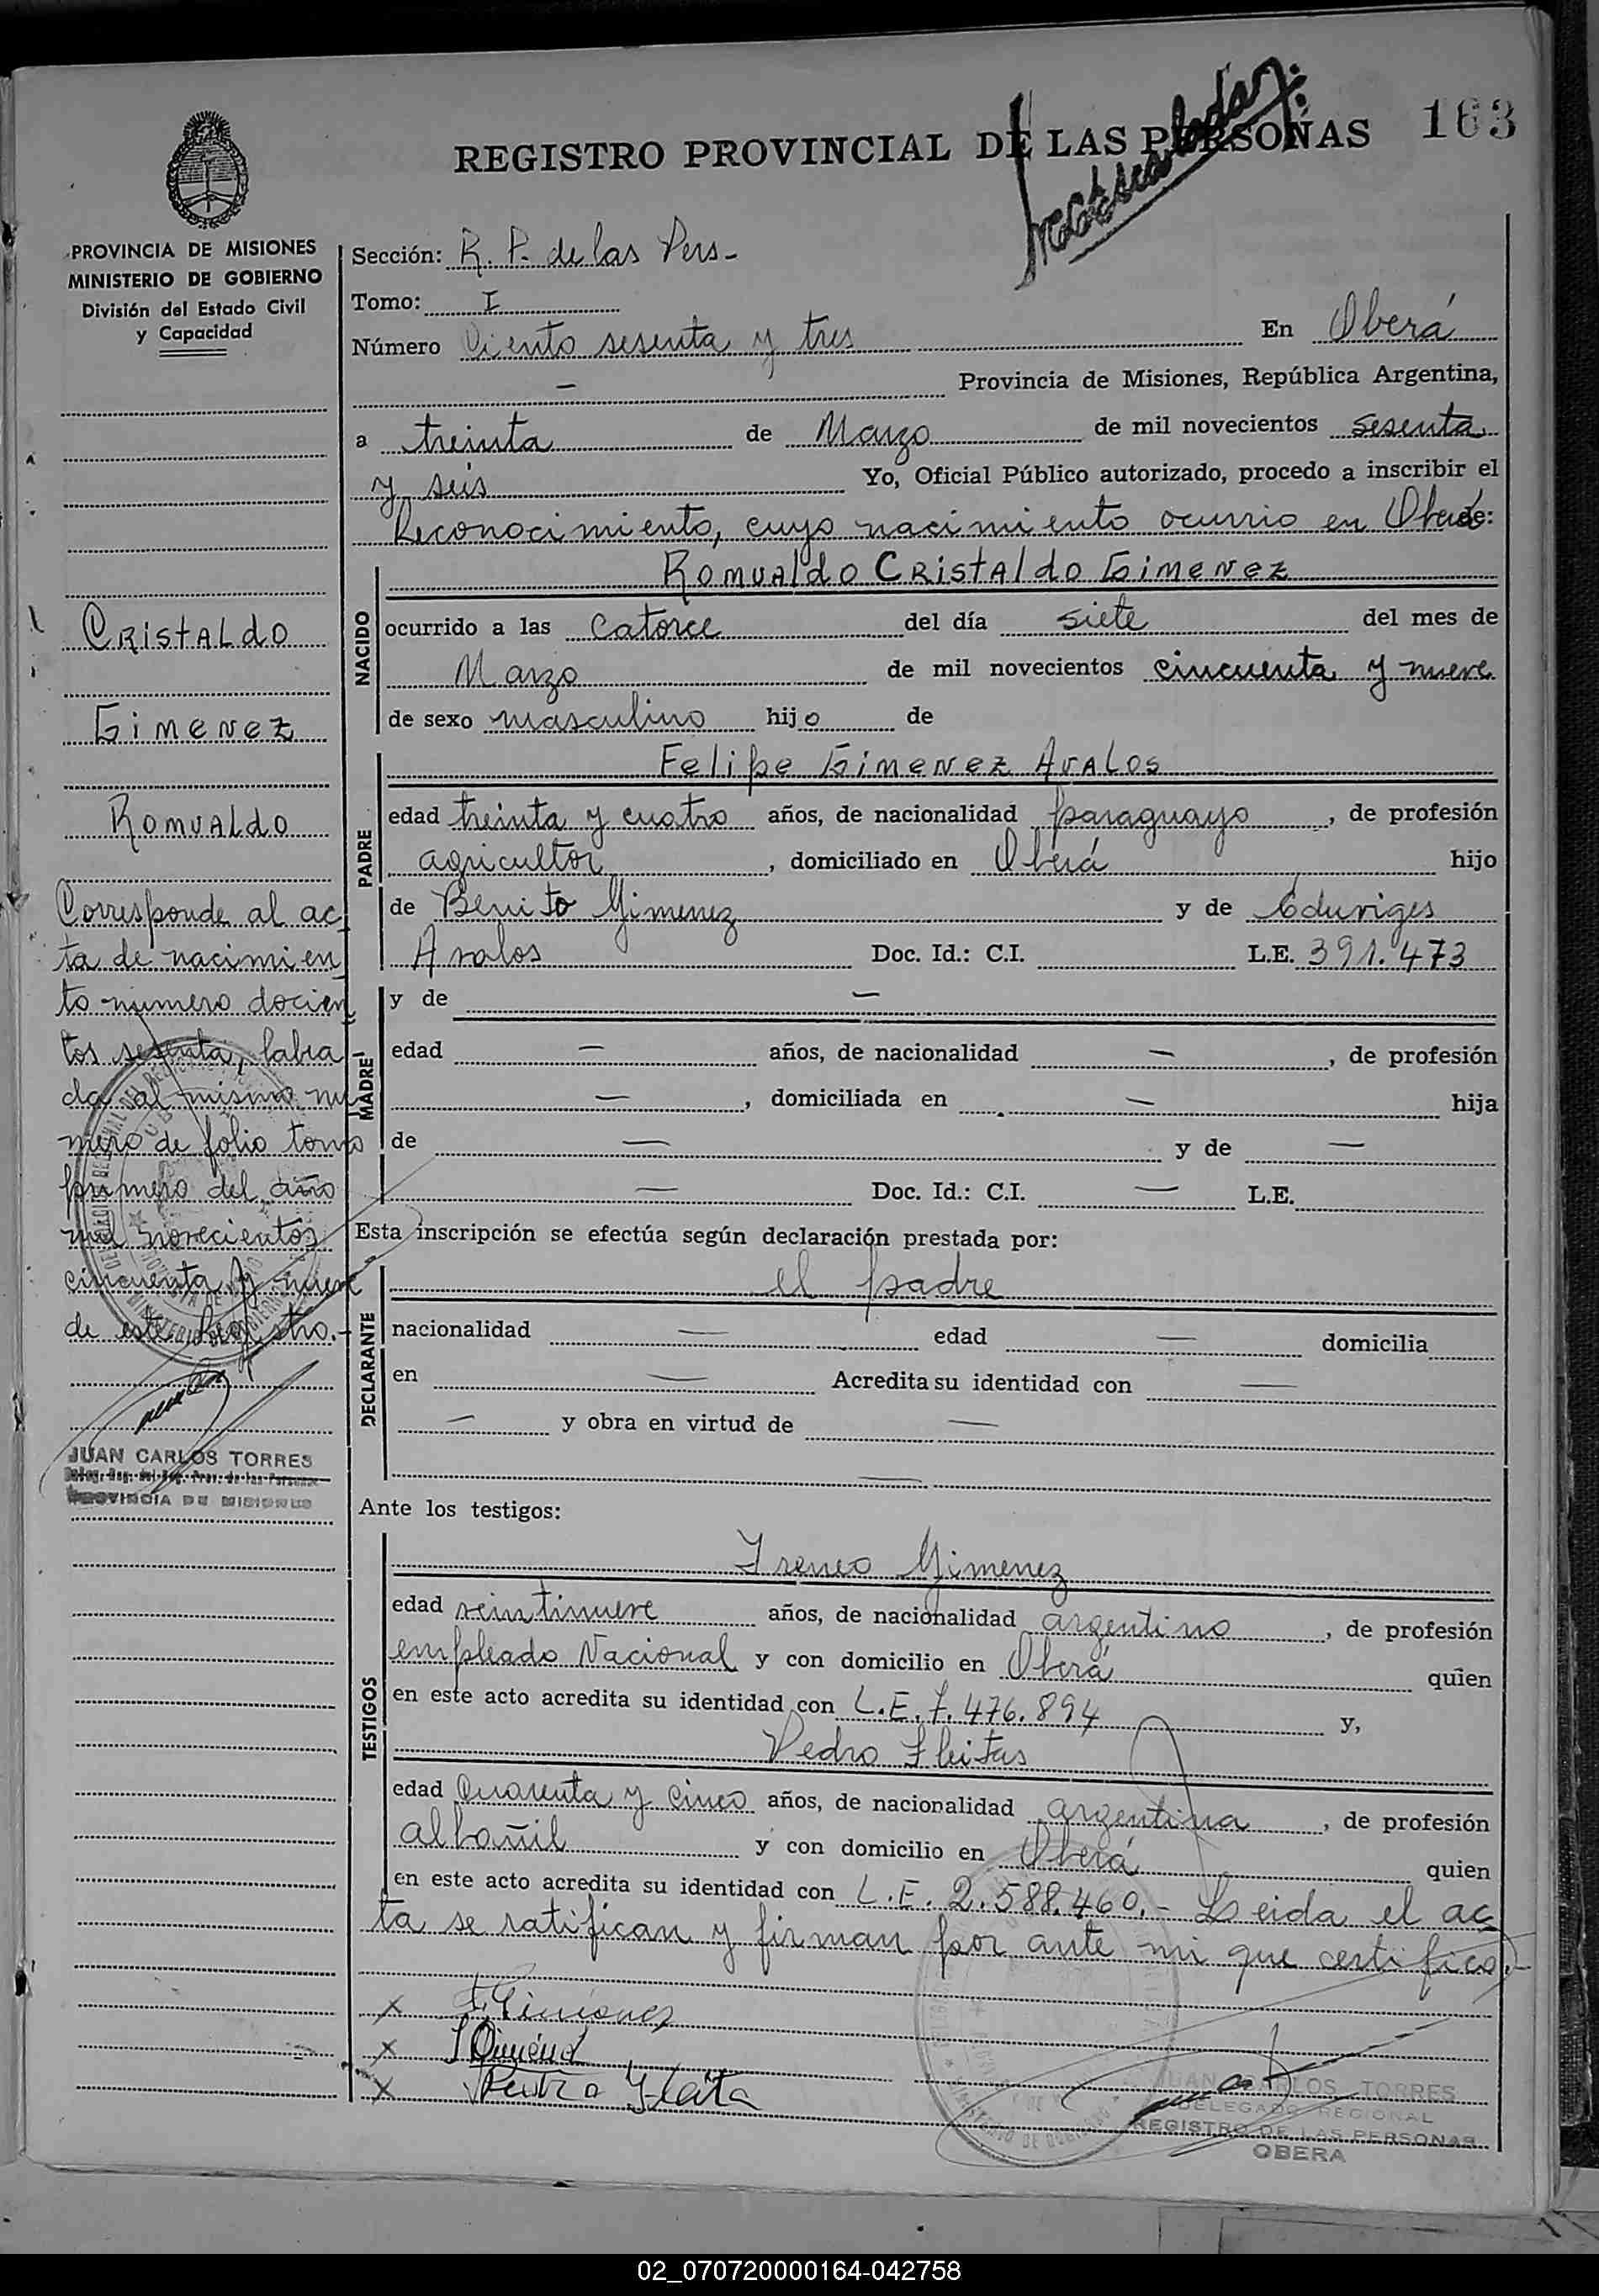 163
REGISTRO PROVINCIAL DE LAS PERSONAS
PROVINCIA DE MISIONES
MINISTERIO DE GOBIERNO
División del Estado Civil
y Capacidad
Sección: R. P. de las Pers-
Tomo: I
Número Ciento sesenta y tres En Oberá
Provincia de Misiones, República Argentina,
a treinta de Marzo de mil novecientos sesenta
y seis Yo, Oficial Público autorizado, procedo a inscribir el
Reconocimiento, cuyo nacimiento ocurrio en Oberá de:
NACIDO
Romualdo Cristaldo Gimenez
ocurrido a las Catorce del día siete del mes de
Marzo de mil novecientos cincuenta y nueve
de sexo masculino hijo de
PADRE
Felipe Gimenez Avalos
edad treinta y cuatro años, de nacionalidad paraguayo, de profesión
agricultor, domiciliado en Oberá hijo
de Benito Gimenez y de Eduviges
Avalos Doc. Id.: C.I. L.E. 391.473
MADRE
y de —
edad — años, de nacionalidad —, de profesión
—, domiciliada en — hija
de — y de —
— Doc. Id.: C.I. — L.E.
Esta inscripción se efectúa según declaración prestada por:
DECLARANTE
el padre
nacionalidad — edad — domicilia
en — Acredita su identidad con —
— y obra en virtud de —
—
Ante los testigos:
TESTIGOS
Ireneo Gimenez
edad veintinueve años, de nacionalidad argentino, de profesión
empleado Nacional y con domicilio en Oberá quien
en este acto acredita su identidad con L.E. 7.476.894 y,
Pedro Fleitas
edad Cuarenta y cinco años, de nacionalidad argentina, de profesión
albañil y con domicilio en Oberá quien
en este acto acredita su identidad con L.E. 2.588.460.- Leida el ac
ta se ratifican y firman por ante mi que certifico.-
x F. Gimenez
x I Gimenez
x Pedro Fleita
JUAN CARLOS TORRES
DELEGADO REGIONAL
REGISTRO DE LAS PERSONAS
OBERA
Cristaldo
Gimenez
Romualdo
Corresponde al ac
ta de nacimien
to numero docien
tos sesenta, labra
da al mismo nu
mero de folio tomo
primero del año
mil novecientos
cincuenta y nueve
de este Registro.-
JUAN CARLOS TORRES
Deleg. Reg. del Reg. Prov. de las Personas
PROVINCIA DE MISIONES
02_070720000164-042758